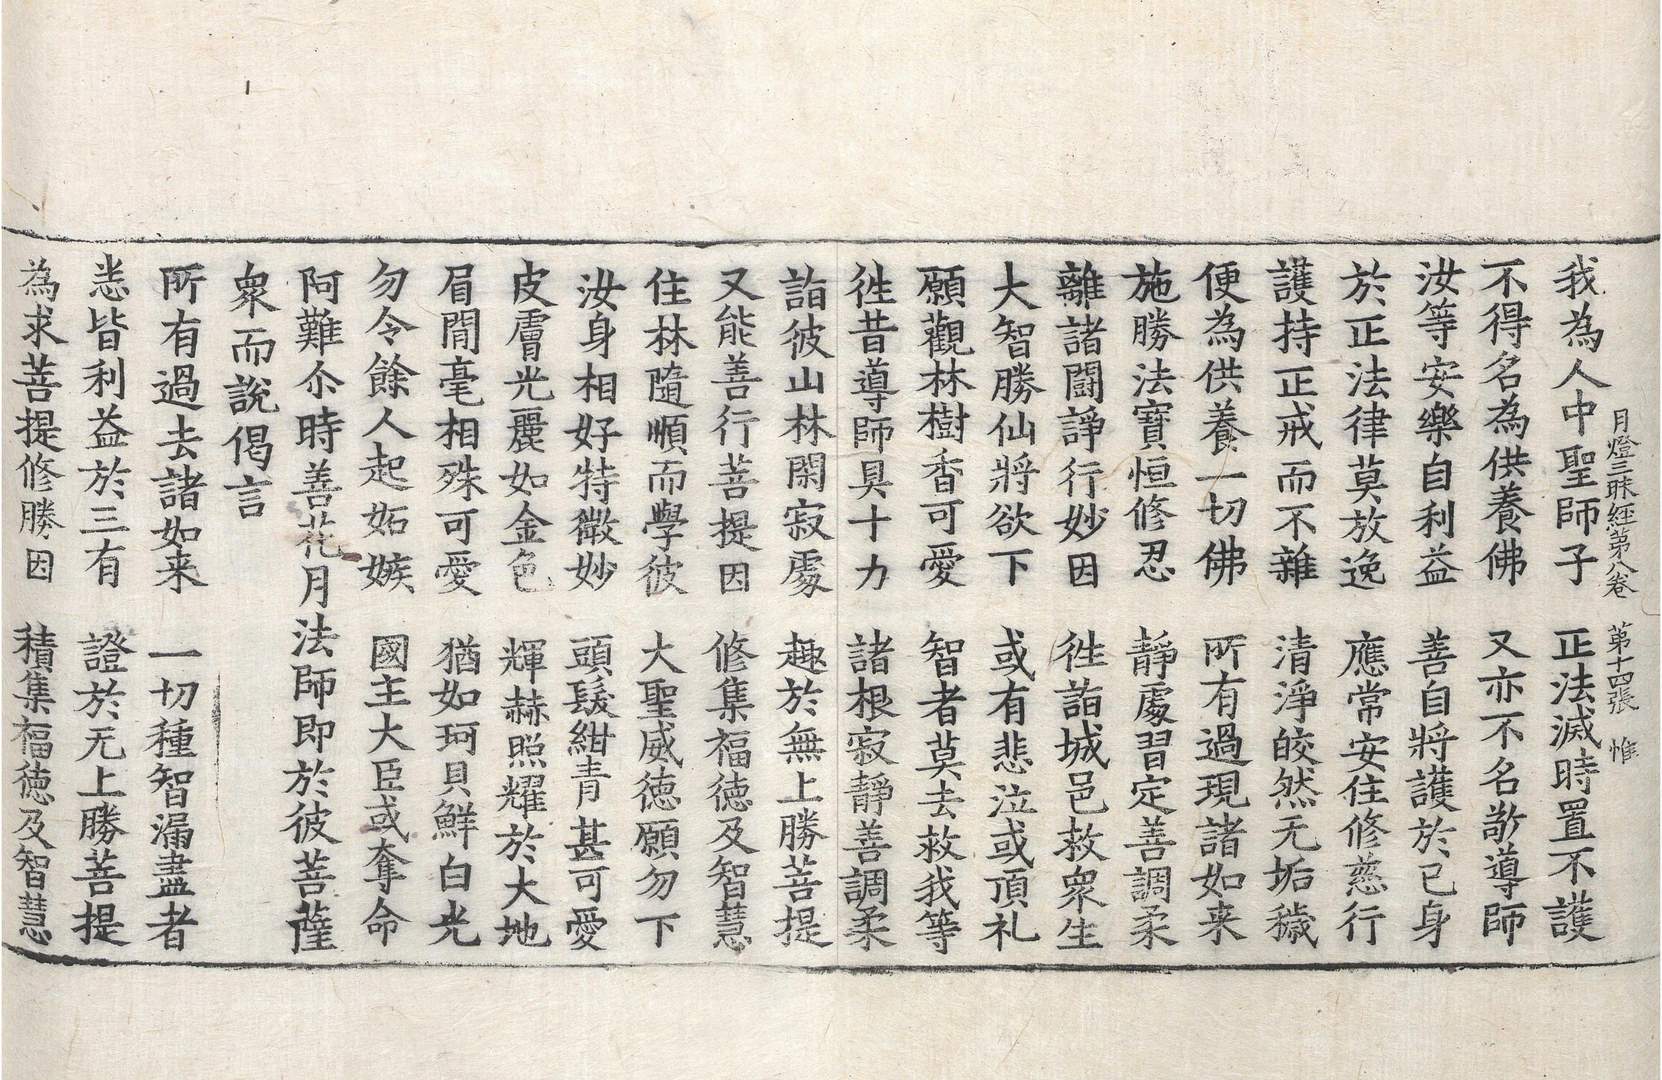 月燈三昧經第八卷　第十四張　惟
我為人中聖師子　正法滅時置不護
不得名為供養佛　又亦不名敬導師
汝等安樂自利益　善自將護於己身
於正法律莫放逸　應常安住修慈行
護持正戒而不雜　清淨皎然无垢穢
便為供養一切佛　所有過現諸如来
施勝法寶恒修忍　靜處習定善調柔
離諸鬪諍行妙因　徃詣城邑救衆生
大智勝仙將欲下　或有悲泣或頂礼
願觀林樹香可愛　智者莫去救我等
徃昔導師具十力　諸根寂靜善調柔
詣彼山林閑寂處　趣於無上勝菩提
又能善行菩提因　修集福徳及智慧
住林隨順而學彼　大聖威徳願勿下
汝身相好特微妙　頭髮紺青甚可愛
皮膚光麗如金色　輝赫照耀於大地
眉間毫相殊可愛　猶如珂貝鮮白光
勿令餘人起妬嫉　國主大臣或奪命
阿難尒時善花月法師即於彼菩薩
衆而說偈言
所有過去諸如来　一切種智漏盡者
悉皆利益於三有　證於无上勝菩提
為求菩提修勝因　積集福徳及智慧